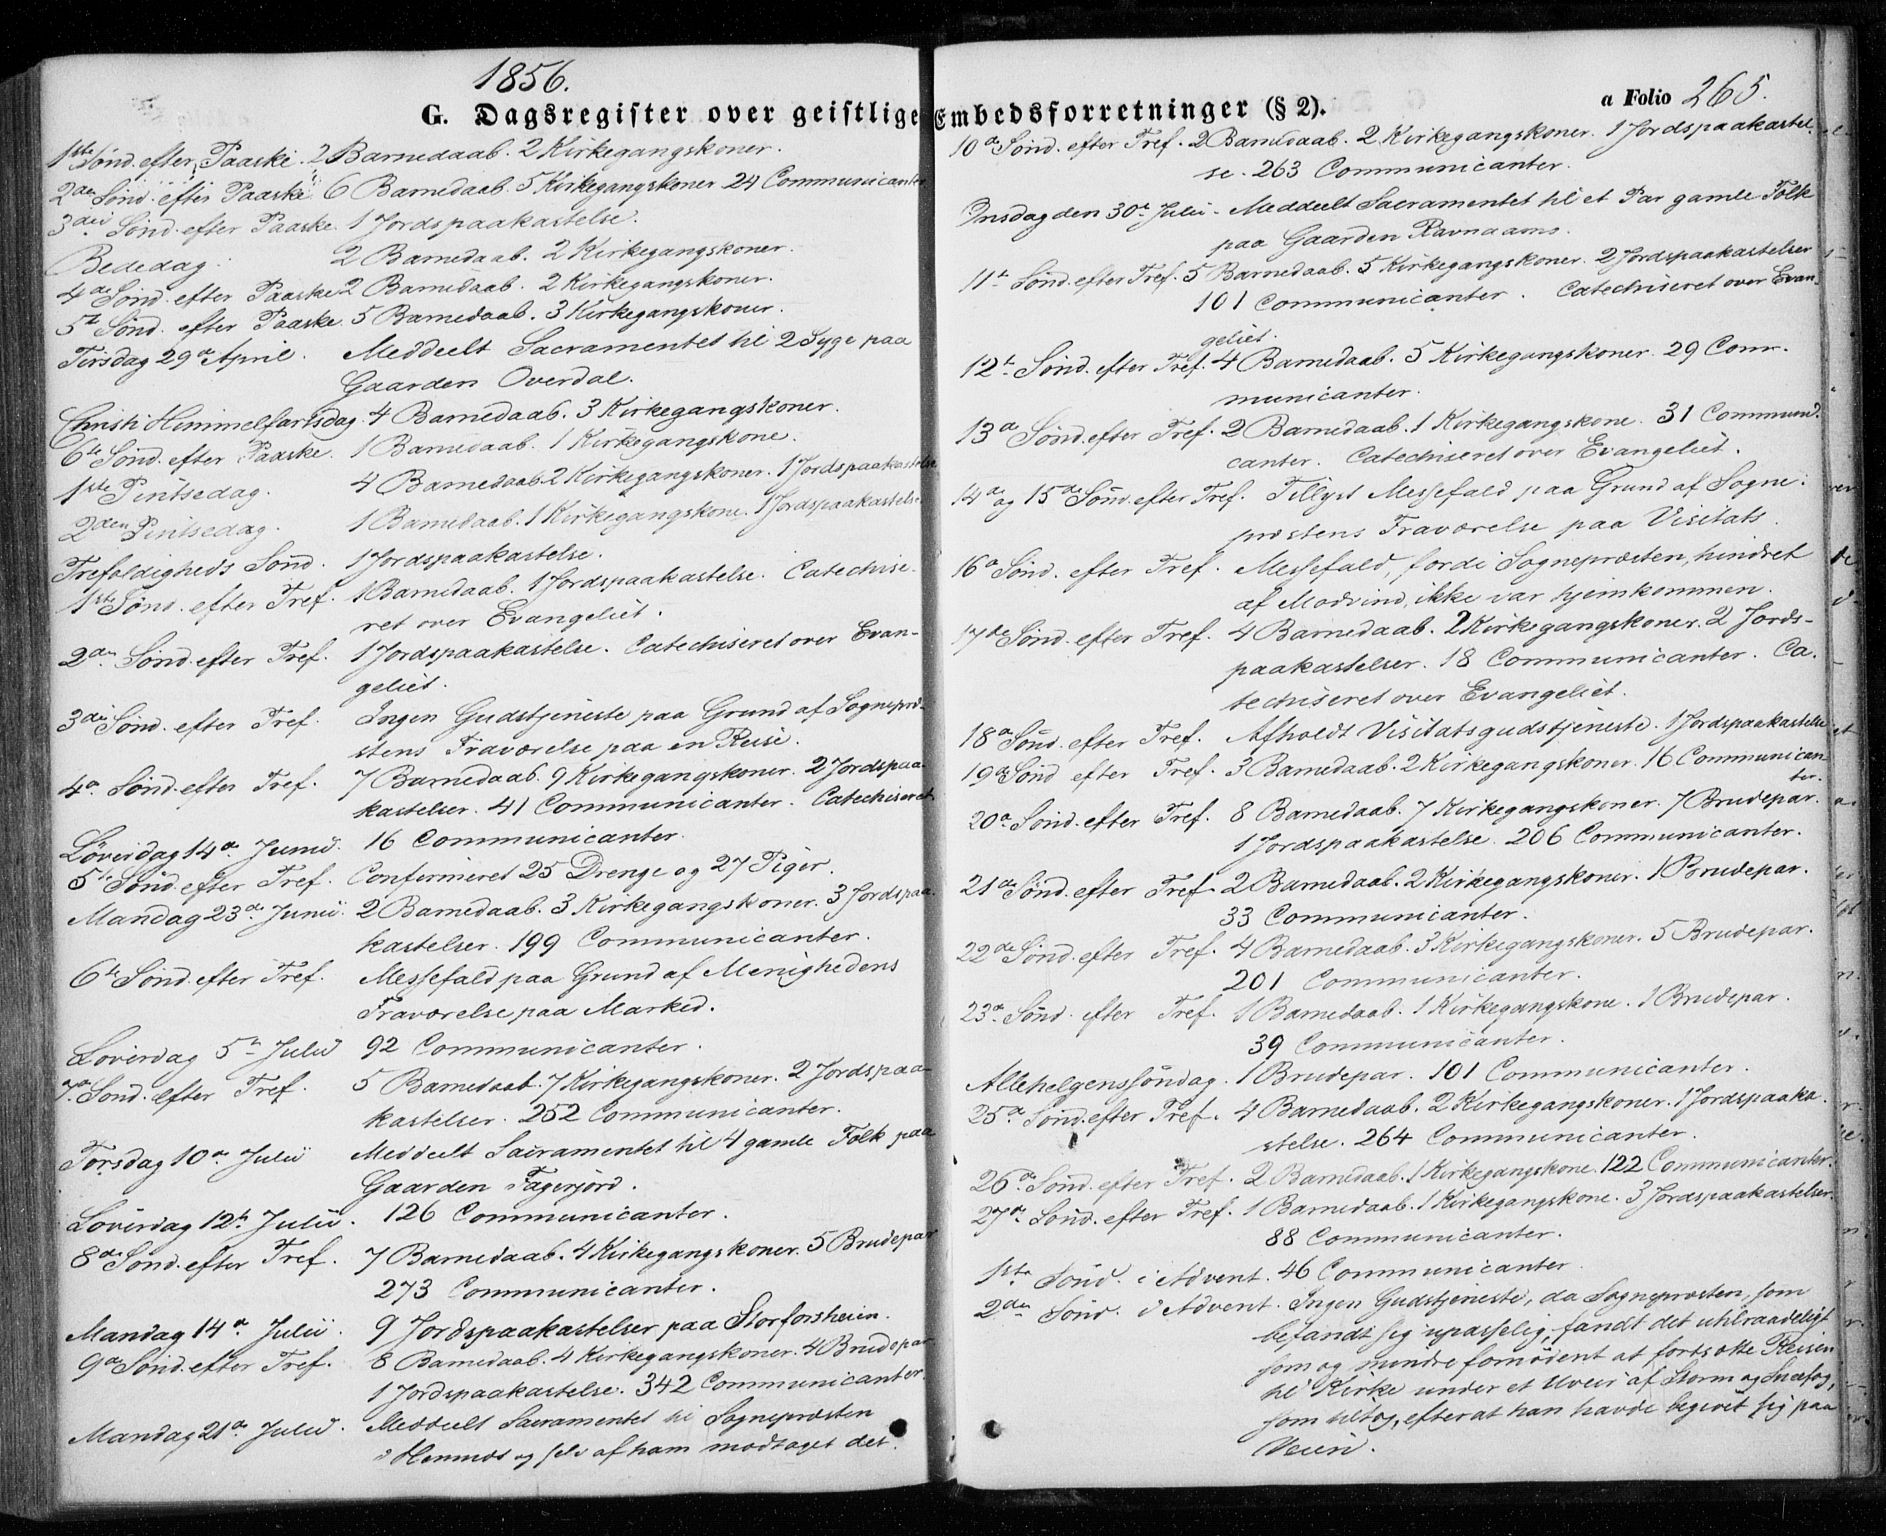 1856.
G. Dagsregister over geistlige Embedsforretninger (§ 2).
a Folio 265.
1ste Sønd. efter Paaske. 2 Barnedaab. 2 Kirkegangskoner.
2den Sønd. efter Paaske 6 Barnedaab. 5 Kirkegangskoner 24 Communicanter
3die Sønd. efter Paaske. 1 Jordspaakastelse.
Bededag. 2 Barnedaab. 2 Kirkegangskoner.
4de Sønd. efter Paaske 2 Barnedaab. 2 Kirkegangskoner.
5te Sønd. efter Paaske. 5 Barnedaab. 3 Kirkegangskoner.
Tirsdag 29de April. Meddeelt Sacramentet til 2 Syge paa
Gaarden Overdal.
Christi Himmelfartsdag. 4 Barnedaab. 3 Kirkegangskoner.
6te Sønd. efter Paaske. 1 Barnedaab. 1 Kirkegangskone.
1ste Pintsedag. 4 Barnedaab. 2 Kirkegangskoner. 1 Jordspaakastelse
2den Pintsedag. 1 Barnedaab. 1 Kirkegangskone. 1 Jordspaakastelse
Trefoldigheds Sønd. 1 Jordspaakastelse.
1ste Sønd. efter Tref. 1 Barnedaab. 1 Jordspaakastelse. Catechise-
ret over Evangeliet.
2den Sønd. efter Tref. 1 Jordspaakastelse. Catechiseret over Evan-
geliet.
3die Sønd. efter Tref. Ingen Gudstjeneste paa Grund af Sognepræ-
stens Fraværelse paa en Reise.
4de Sønd. efter Tref. 7 Barnedaab. 9 Kirkegangskoner. 2 Jordspaa-
kastelser. 41 Communicanter. Catechiseret
Løverdag 14de Junii. 16 Communicanter.
5te Sønd. efter Tref. Confirmeret 25 Drenge og 27 Piger.
Mandag 23de Junii. 2 Barnedaab. 3 Kirkegangskoner. 3 Jordspaa-
kastelser. 199 Communicanter.
6te Sønd. efter Tref. Messefald paa Grund af Menighedens
Fraværelse paa Marked.
Løverdag 5te Julii 92 Communicanter.
7de Sønd. efter Tref. 5 Barnedaab. 7 Kirkegangskoner. 2 Jordspaa-
kastelser. 252 Communicanter.
Torsdag 10de Julii Meddeelt Sacramentet til 4 gamle Folk paa
Gaarden Fagerjord.
Løverdag 12te Julii. 126 Communicanter.
8de Sønd. efter Tref. 7 Barnedaab. 4 Kirkegangskoner. 5 Brudepar
273 Communicanter.
Mandag 14de Julii. 9 Jordspaakastelser paa Storforsheien.
9de Sønd. efter Tref. 8 Barnedaab. 4 Kirkegangskoner. 4 Brudepar
1 Jordspaakastelse. 342 Communicanter.
Mandag 21de Julii. Meddeelt Sacramentet til Sognepræsten
i Hemnæs og selv af ham modtaget det.
10de Sønd. efter Tref. 2 Barnedaab. 2 Kirkegangskoner. 1 Jordspaakastel-
se. 263 Communicanter.
Onsdag den 30te Julii. Meddeelt Sacramentet til et Par gamle Folk
paa Gaarden Ravnaamo.
11te Sønd. efter Tref. 5 Barnedaab. 5 Kirkegangskoner. 2 Jordspaakastelser
101 Communicanter. Catechiseret over Evan-
geliet.
12te Sønd. efter Tref. 4 Barnedaab. 5 Kirkegangskoner. 29 Com-
municanter.
13de Sønd. efter Tref. 2 Barnedaab. 1 Kirkegangskone. 31 Communi-
canter. Catechiseret over Evangeliet.
14de og 15de Sønd. efter Tref. Tillyst Messefald paa Grund af Sogne-
præstens Fraværelse paa Visitats.
16de Sønd. efter Tref. Messefald, fordi Sognepræsten, hindret
af Modvind, ikke var hjemkommen.
17de Sønd. efter Tref. 4 Barnedaab. 2 Kirkegangskoner. 2 Jords-
paakastelser. 18 Communicanter. Ca-
techiseret over Evangeliet.
18de Sønd. efter Tref. Afholdt Visitatsgudstjeneste. 1 Jordspaakastelse
19de Sønd efter Tref. 3 Barnedaab. 2 Kirkegangskoner. 16 Communican-
ter.
20de Sønd. efter Tref. 8 Barnedaab. 7 Kirkegangskoner. 7 Brudepar.
1 Jordspaakastelse. 206 Communicanter.
21de Sønd. efter Tref. 2 Barnedaab. 2 Kirkegangskoner. 1 Brudepar.
33 Communicanter.
22de Sønd. efter Tref. 4 Barnedaab. 3 Kirkegangskoner. 5 Brudepar.
201 Communicanter.
23de Sønd. efter Tref. 1 Barnedaab. 1 Kirkegangskone. 1 Brudepar.
39 Communicanter.
Allehelgenssøndag. 1 Brudepar. 101 Communicanter.
25de Sønd. efter Tref. 4 Barnedaab. 2 Kirkegangskoner. 1 Jordspaaka-
stelse. 264 Communicanter.
26de Sønd. efter Tref. 2 Barnedaab. 1 Kirkegangskone. 122 Communicanter.
27de Sønd. efter Tref. 1 Barnedaab. 1 Kirkegangskone. 3 Jordspaakastelser.
88 Communicanter.
1ste Sønd. i Advent. 46 Communicanter
2den Sønd. i Advent. Ingen Gudstjeneste, da Sognepræsten, som
befandt sig upasselig, fandt det utilraadeligt
som og mindre fornødent at fortsætte Reisen
til Kirke under et Uveir af Storm og Sneefog,
som tiltog, efterat han havde begivet sig paa
Veien.